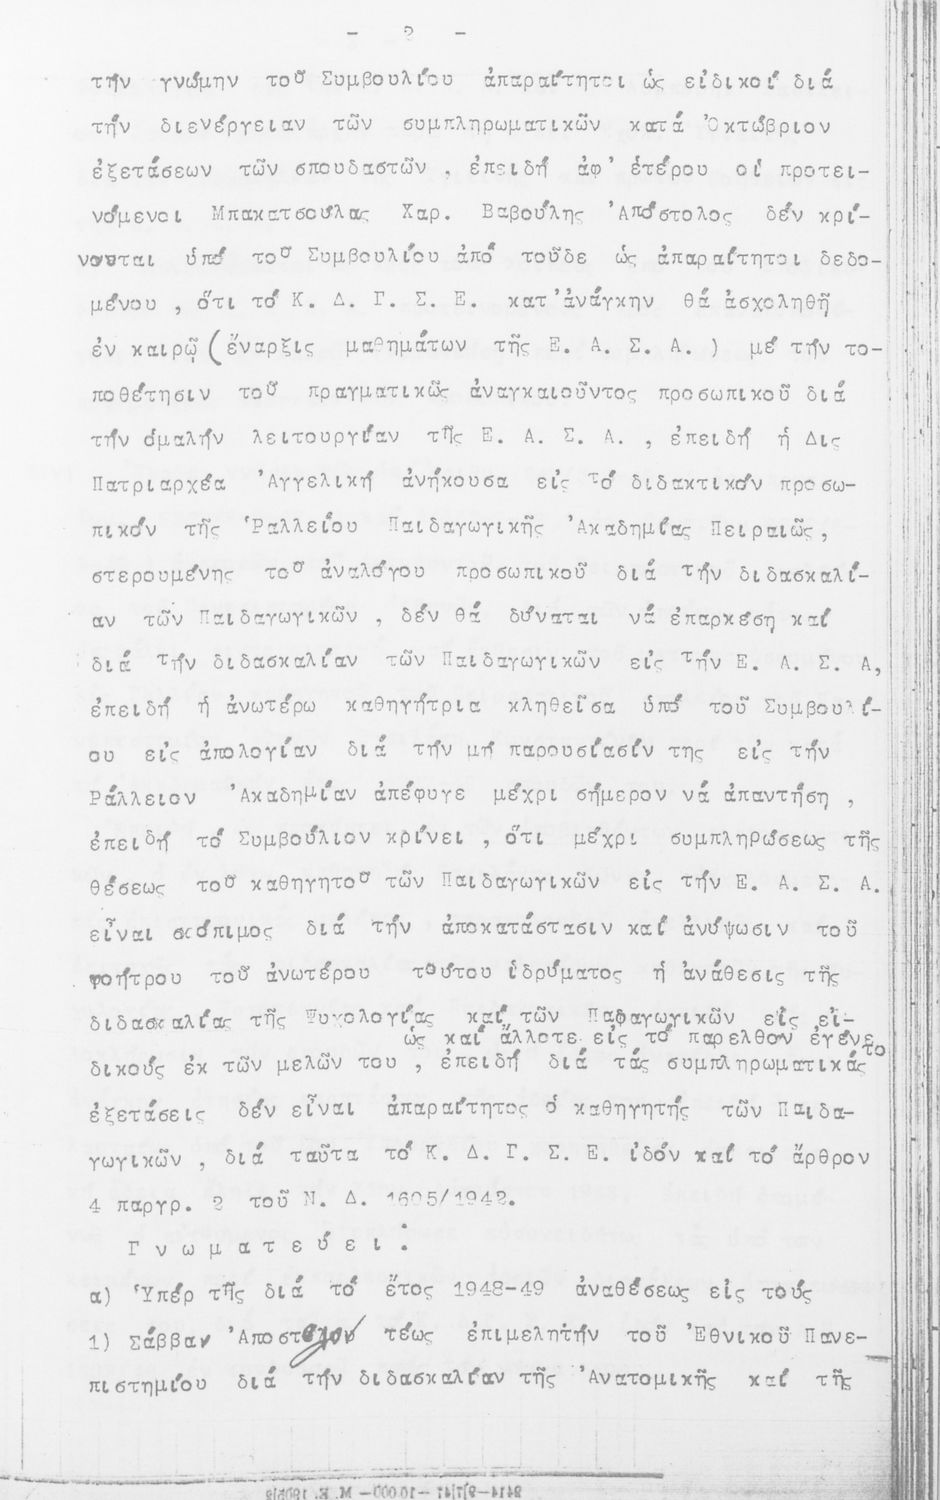 - 2 -
τήν γνώμην τοῦ Συμβουλίου ἀπαραίτητοι ὡς εἰδικοί διά
τήν διενέργειαν τῶν συμπληρωματικῶν κατά Ὀκτώβριον
ἐξετάσεων τῶν σπουδαστῶν , ἐπειδή ἀφ' ἑτέρου οἱ προτει-
νόμενοι Μπακατσούλας Χαρ. Βαβούλης Ἀπόστολος δέν κρί-
νονται ὑπό τοῦ Συμβουλίου ἀπό τοῦδε ὡς ἀπαραίτητοι δεδο-
μένου , ὅτι τό Κ. Δ. Γ. Σ. Ε. κατ' ἀνάγκην θά ἀσχοληθῇ
ἐν καιρῷ (ἔναρξις μαθημάτων τῆς Ε. Α. Σ. Α. ) μέ τήν το-
ποθέτησιν τοῦ πραγματικῶς ἀναγκαιοῦντος προσωπικοῦ διά
τήν ὁμαλήν λειτουργίαν τῆς Ε. Α. Σ. Α. , ἐπειδή ἡ Δις
Πατριαρχέα Ἀγγελική ἀνήκουσα εἰς τό διδακτικόν προσω-
πικόν τῆς Ῥαλλείου Παιδαγωγικῆς Ἀκαδημίας Πειραιῶς,
στερουμένης τοῦ ἀναλόγου προσωπικοῦ διά τήν διδασκαλί-
αν τῶν Παιδαγωγικῶν , δέν θά δύναται νά ἐπαρκέση καί
διά τήν διδασκαλίαν τῶν Παιδαγωγικῶν εἰς τήν Ε. Α. Σ. Α,
ἐπειδή ἡ ἀνωτέρω καθηγήτρια κληθεῖσα ὑπό τοῦ Συμβουλί-
ου εἰς ἀπολογίαν διά τήν μή παρουσίασίν της εἰς τήν
Ράλλειον Ἀκαδημίαν ἀπέφυγε μέχρι σήμερον νά ἀπαντήση ,
ἐπειδή τό Συμβούλιον κρίνει , ὅτι μέχρι συμπληρώσεως τῆς
θέσεως τοῦ καθηγητοῦ τῶν Παιδαγωγικῶν εἰς τήν Ε. Α. Σ. Α.
εἶναι σκόπιμος διά τήν ἀποκατάστασιν καί ἀνύψωσιν τοῦ
γοήτρου τοῦ ἀνωτέρου τούτου ἱδρύματος ἡ ἀνάθεσις τῆς
διδασκαλίας τῆς Ψυχολογίας καί τῶν Παδαγωγικῶν εἰς εἰ-
ὡς καί ἄλλοτε εἰς τό παρελθόν ἐγένετο
δικούς ἐκ τῶν μελῶν του , ἐπειδή διά τάς συμπληρωματικάς
ἐξετάσεις δέν εἶναι ἀπαραίτητος ὁ καθηγητής τῶν Παιδα-
γωγικῶν , διά ταῦτα τό Κ. Δ. Γ. Σ. Ε. ἰδόν καί τό ἄρθρον
4 παργρ. 2 τοῦ Ν. Δ. 1695/1942.
Γ ν ω μ α τ ε ύ ε ι :
α) Ὑπέρ τῆς διά τό ἔτος 1948-49 ἀναθέσεως εἰς τούς
1) Σάββαν Ἀποστόλου τέως ἐπιμελητήν τοῦ Ἐθνικοῦ Πανε-
πιστημίου διά τήν διδασκαλίαν τῆς Ἀνατομικῆς καί τῆς